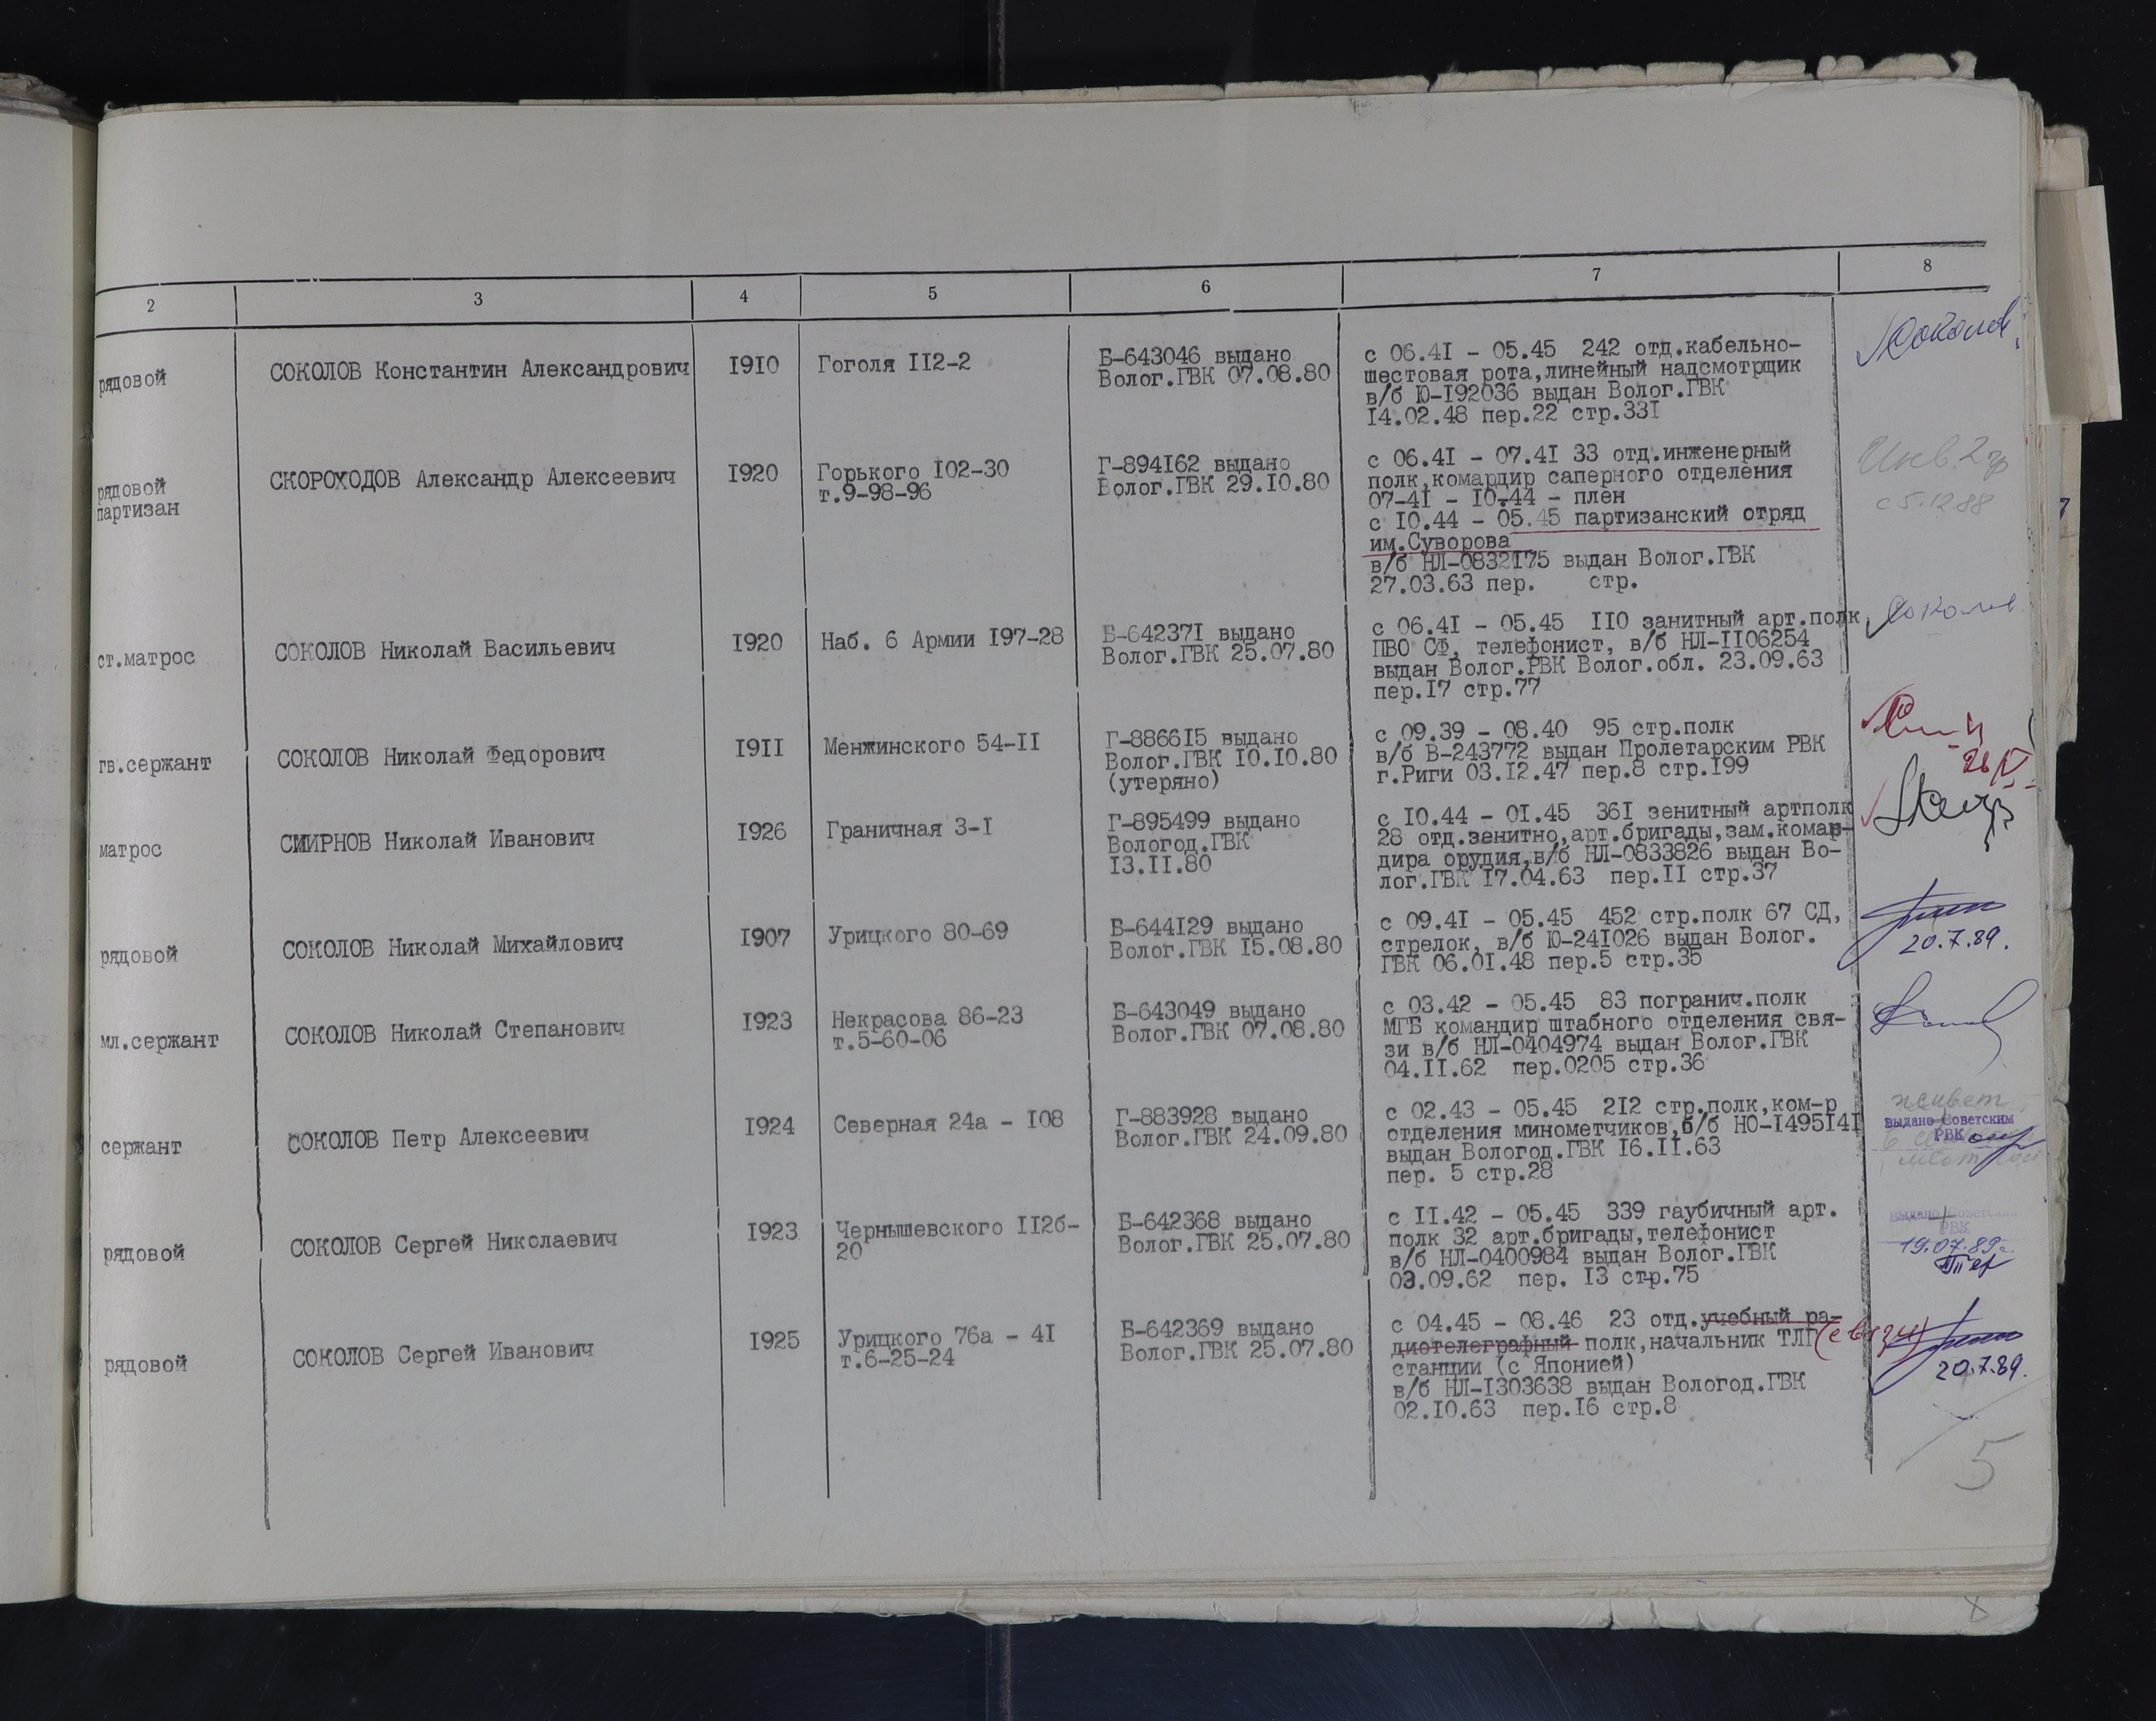 2 3 4 5 6 7 8
рядовой
СОКОЛОВ Константин Александрович
1910
Гоголя 112-2
Б-643046 выдано
Волог.ГВК 07.08.80
с 06.41 - 05.45 242 отд.кабельно-
шестовая рота,линейный надсмотрщик
в/б Ю-192036 выдан Волог.ГВК
14.02.48 пер.22 стр.331
Соколов
рядовой
партизан
СКОРОХОДОВ Александр Алексеевич
1920
Горького 102-30
т.9-98-96
Г-894162 выдано
Волог.ГВК 29.10.80
с 06.41 - 07.41 33 отд.инженерный
полк,комардир саперного отделения
07-41 - 10.44 - плен
с 10.44 - 05.45 партизанский отряд
им.Суворова
в/б НЛ-0832175 выдан Волог.ГВК
27.03.63 пер. стр.
Инв.2 гр
с 5.12.88
ст.матрос
СОКОЛОВ Николай Васильевич
1920
Наб. 6 Армии 197-28
Б-642371 выдано
Волог.ГВК 25.07.80
с 06.41 - 05.45 110 занитный арт.полк
ПВО СФ, телефонист, в/б НЛ-1106254
выдан Волог.РВК Волог.обл. 23.09.63
пер.17 стр.77
Соколов
гв.сержант
СОКОЛОВ Николай Федорович
1911
Менжинского 54-11
Г-886615 выдано
Волог.ГВК 10.10.80
(утеряно)
с 09.39 - 08.40 95 стр.полк
в/б В-243772 выдан Пролетарским РВК
г.Риги 03.12.47 пер.8 стр.199
26/V
матрос
СМИРНОВ Николай Иванович
1926
Граничная 3-1
Г-895499 выдано
Вологод.ГВК
13.11.80
с 10.44 - 01.45 361 зенитный артполк
28 отд.зенитно,арт.бригады,зам.комар-
дира орудия,в/б НЛ-0833826 выдан Во-
лог.ГВК 17.04.63 пер.11 стр.37
рядовой
СОКОЛОВ Николай Михайлович
1907
Урицкого 80-69
Б-644129 выдано
Волог.ГВК 15.08.80
с 09.41 - 05.45 452 стр.полк 67 СД,
стрелок, в/б Ю-241026 выдан Волог.
ГВК 06.01.48 пер.5 стр.35
20.7.89.
мл.сержант
СОКОЛОВ Николай Степанович
1923
Некрасова 86-23
т.5-60-06
Б-643049 выдано
Волог.ГВК 07.08.80
с 03.42 - 05.45 83 погранич.полк
МГБ командир штабного отделения свя-
зи в/б НЛ-0404974 выдан Волог.ГВК
04.11.62 пер.0205 стр.36
сержант
СОКОЛОВ Петр Алексеевич
1924
Северная 24а - 108
Г-883928 выдано
Волог.ГВК 24.09.80
с 02.43 - 05.45 212 стр.полк,ком-р
отделения минометчиков,б/б НО-1495141
выдан Вологод.ГВК 16.11.63
пер. 5 стр.28
живет
выдано Советским
РВК
рядовой
СОКОЛОВ Сергей Николаевич
1923
Чернышевского 112б-
20
Б-642368 выдано
Волог.ГВК 25.07.80
с 11.42 - 05.45 339 гаубичный арт.
полк 32 арт.бригады,телефонист
в/б НЛ-0400984 выдан Волог.ГВК
03.09.62 пер. 13 стр.75
выдано Советским
РВК
19.07.89г.
рядовой
СОКОЛОВ Сергей Иванович
1925
Урицкого 76а - 41
т.6-25-24
Б-642369 выдано
Волог.ГВК 25.07.80
с 04.45 - 08.46 23 отд.учебный ра-
диотелеграфный полк,начальник ТЛГ (связи)
станции (с Японией)
в/б НЛ-1303638 выдан Вологод.ГВК
02.10.63 пер.16 стр.8
20.7.89.
5